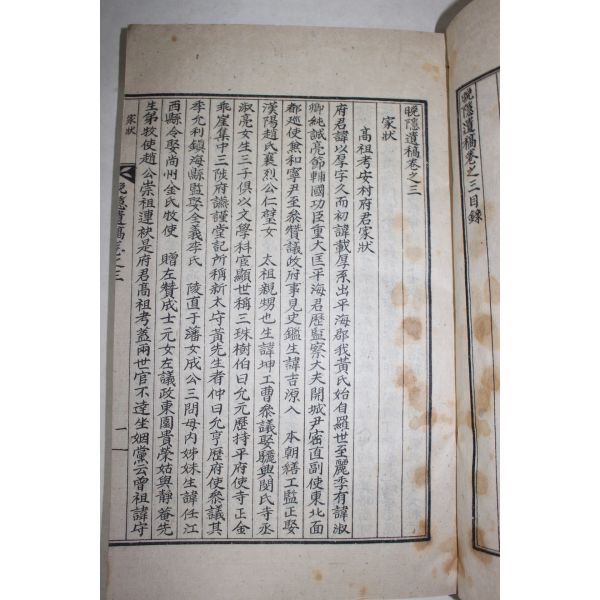 晚隱遺稿卷之三目錄
晚隱遺稿卷之三
家狀
高祖考安村府君家狀
府君諱以厚字久而初諱載厚系出平海郡我黃氏始自羅世至麗季有諱淑
卿純誠亮節輔國功臣重大匡平海君歷監察大夫開城尹密直副使東北面
都廵使兼和寧尹至叅贊議政府事見史鑑生諱吉源入 本朝繕工監正娶
漢陽趙氏襄烈公仁璧女 太祖親甥也生諱坤工曹叅議娶驪興閔氏寺丞
淑亮女生三子俱以文學科宦顯世稱三珠樹伯曰允元歷持平府使寺正金
乖崖集中三陟府讌謹堂記所稱新太守黃先生者仲曰允亨歷府使叅議其
李允利鎮海縣監娶全義李氏 陵直于藩女成公三問母內姊妹生諱任江
西縣令娶尚州金氏牧使 贈左贊成士元女左議政東園貴榮姑與靜菴先
生弟牧使趙公崇祖連袂是府君高祖考盖兩世官不達坐姻黨云曾祖諱守
家狀
晚隱遺稿卷之三
一